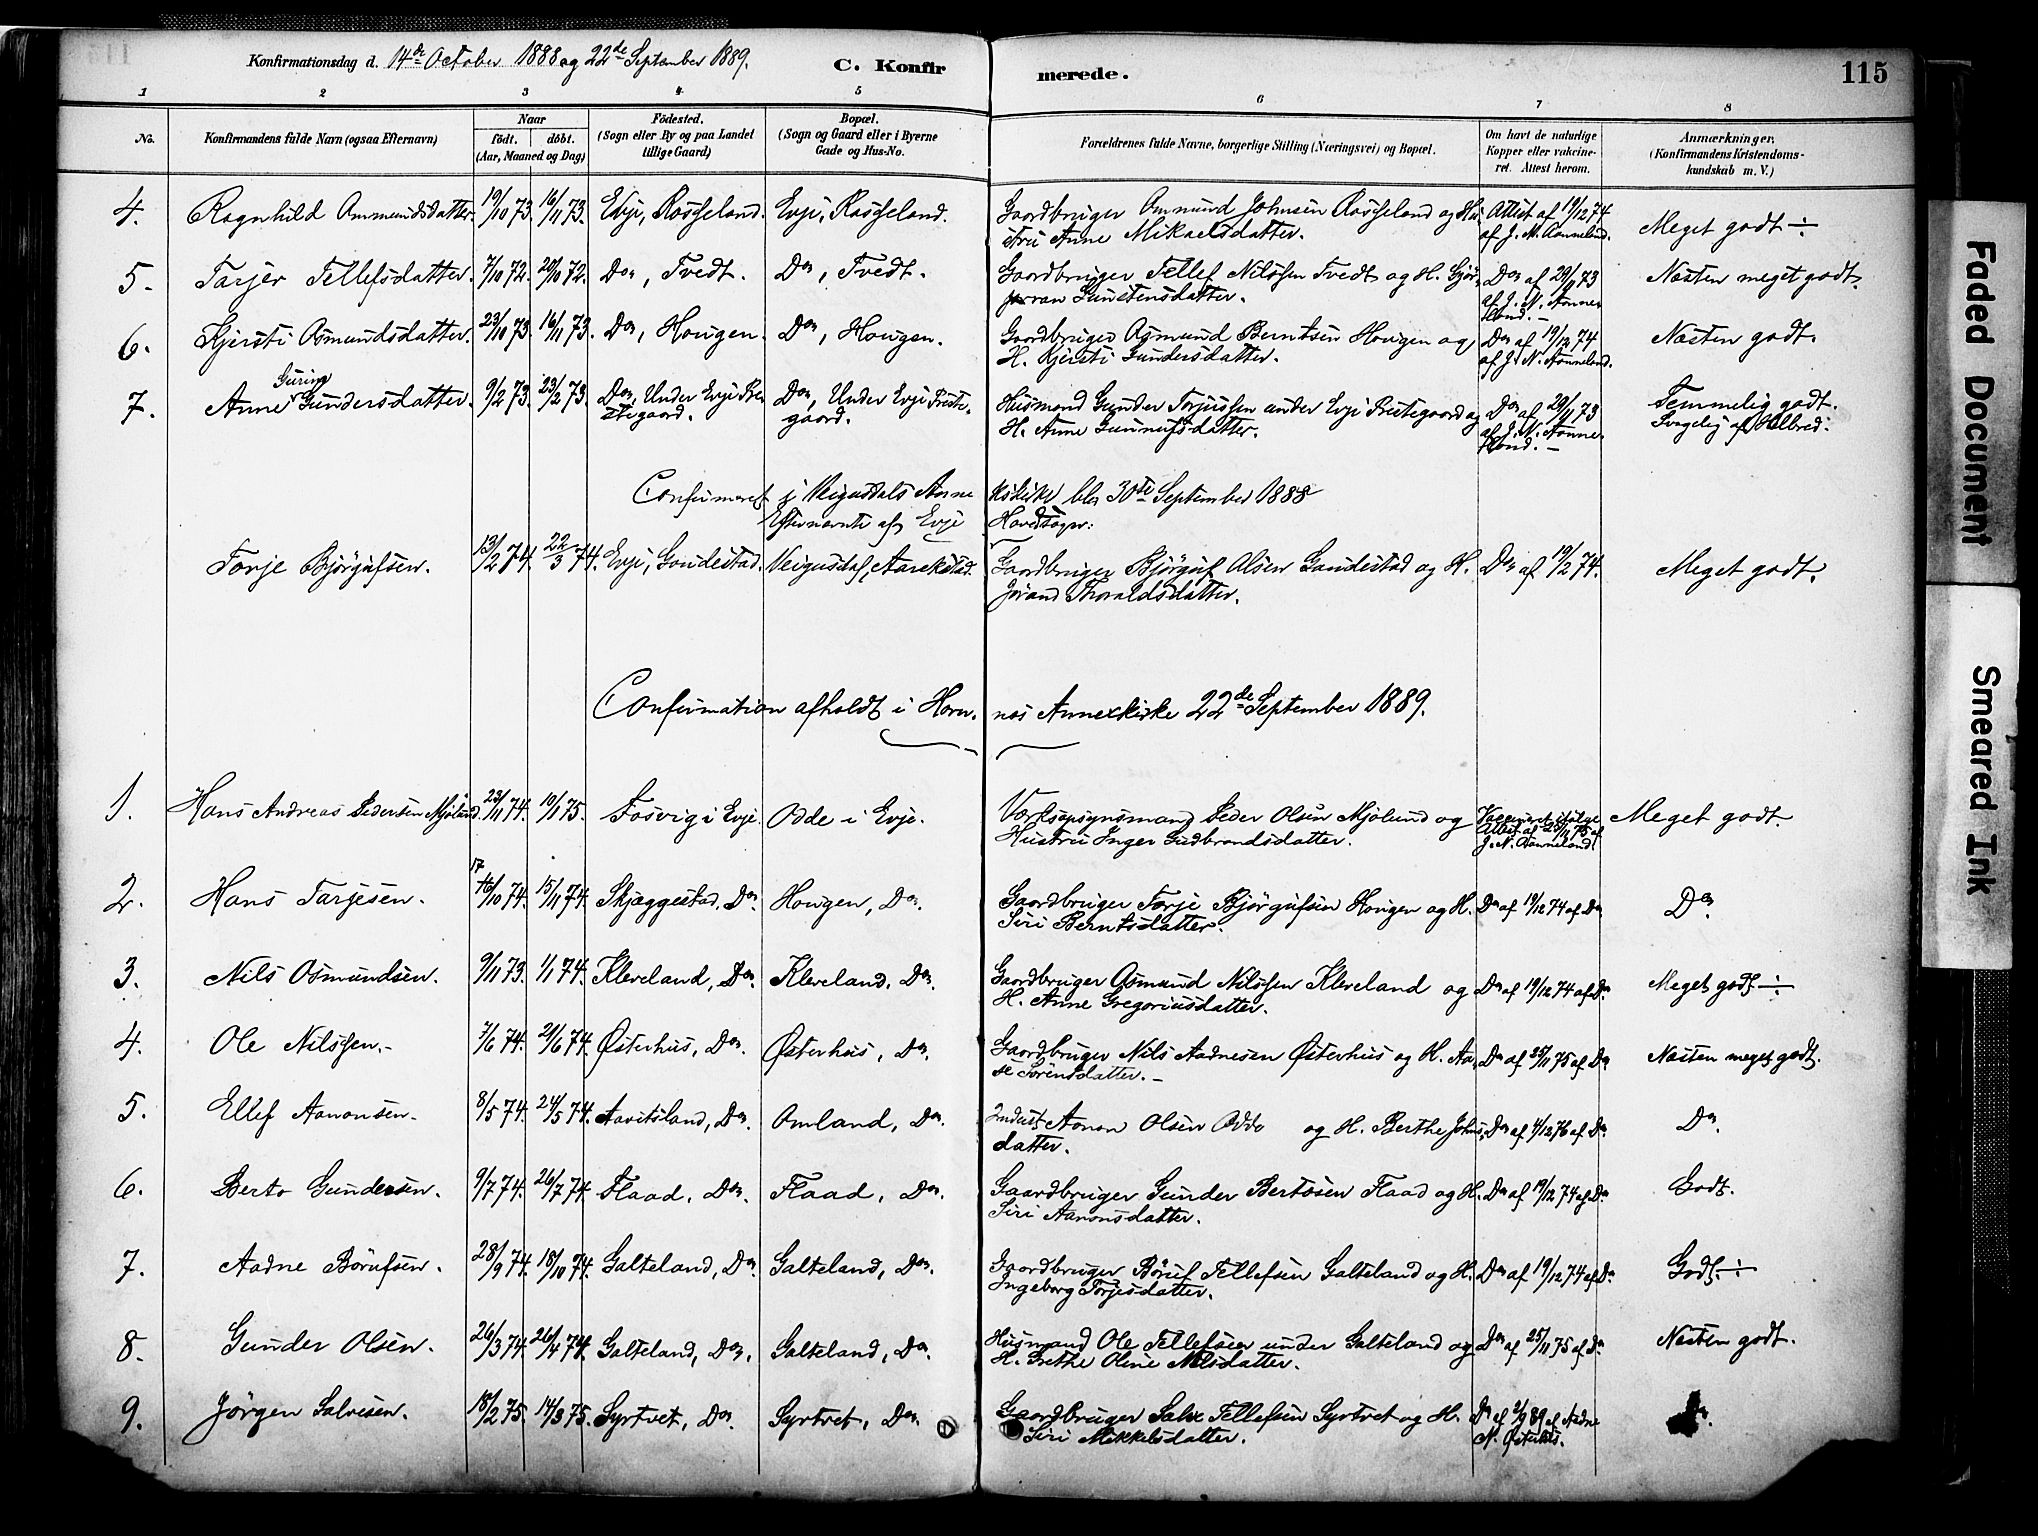 Konfirmationsdag d. 14de October 1888 og 22de September 1889.
C. Konfir merede.
115
1 2 3 4 5 6 7 8
No.
Konfirmandens fulde Navn (ogsaa Efternavn)
Naar
födt. döbt.
(Aar, Maaned og Dag)
Födested.
(Sogn eller By og paa Landet
tillige Gaard)
Bopæl.
(Sogn og Gaard eller i Byerne
Gade og Hus-No.
Forældrenes fulde Navne, borgerlige Stilling (Næringsvei) og Bopæl.
Om havt de naturlige
Kopper eller vakcine-
ret. Attest herom.
Anmærkninger.
(Konfirmandens Kristendoms-
kundskab m. V.)
4. Ragnhild Ammundsdatter. 19/10 73. 16/11 73. Evje, Rosseland. Evje, Rosseland. Gaardbruger Ammund Johnsen Rosseland og Hu- Attest af 19/12 74 Meget godt ÷
stru Anne Mikaelsdatter. af J. N. Aanneland.
5. Tarjer Tellefsdatter. 7/10 72. 20/10 72. Do, Tvedt. Do, Tvedt. Gaardbruger Tellef Nilssen Tvedt og H. Gjör- Do af 29/11 73 Næsten meget godt.
Gunstensdatter. af J. N. Aanne-
land. –
6. Kjersti Osmundsdatter. 23/10 73. 16/11 73. Do, Hougen. Do, Hougen. Gaardbruger Osmund Berntsen Hougen og Do af 19/12 74 Næsten godt.
H. Kjersti Gundersdatter. af J. N. Aanneland.
Guring
7. Anne Gundersdatter. 9/2 73. 23/2 73. Do, Under Evje Præ- Do, Under Evje Præste- Husmand Gunder Torjussen under Evje Præstegaard og Do af 29/11 73 Temmelig godt.
stegaard. gaard. H. Anne Gunnufsdatter. af J. N. Aanne- Svagelig af Helbred.
land. –
Confirmeret i Veigusdals Anne xkirke blev 30te September 1888
Efternævnte af Evje Hovedsogn:
Torje Bjørgufsen. 13/2 74. 22/3 74. Evje, Gaudestad. Veigusdal, Aarekstad. Gaardbruger Bjørguf Olsen Gaudestad og H. Do af 19/12 74. Meget godt.
Jørand Thoraldsdatter.
Confirmation afholdt i Horn- næs Annexkirke 22de September 1889.
1. Hans Andreas Pedersen Mjølund. 23/11 74. 10/1 75. Fosvig i Evje. Odde i Evje. Værksopsynsmand Peder Olsen Mjølund og Vaccineret ifølge Meget godt.
Hustru Inger Gudbrandsdatter. Attest af 25/11 75 af
J. N. Aanneland.
17
2. Hans Tarjesen. 16/10 74. 15/11 74. Skjæggestad, Do. Hougen, Do. Gaardbruger Torje Bjørgufsen Hougen og H. Do af 19/12 74 af Do Do.
Siri Berntsdatter.
3. Nils Osmundsen. 9/11 73. 1/1 74. Kleveland, Do. Kleveland, Do. Gaardbruger Osmund Nilssen Kleveland og Do af 19/12 74 af Do Meget godt ÷
H. Anne Gregoriusdatter.
4. Ole Nilssen. – 7/6 74. 21/6 74. Østerhus, Do. Østerhus, Do. Gaardbruger Nils Aadnesen Østerhus og H. Aa- Do af 25/11 75 af Do Næsten meget godt.
se Sörensdatter. –
5. Ellef Aanonsen. 8/5 74. 24/5 74. Aavitsland, Do. Omland, Do. Inderst Aanon Olsen Odde og H. Berthe Johns- Do af 4/12 76 af Do Do.
datter.
6. Berto Gundersen. 9/7 74. 26/7 74. Flaad, Do. Flaad, Do. Gaardbruger Gunder Bertosen Flaad og H. Do af 19/12 74 af Do Godt.
Siri Aanonsdatter.
7. Aadne Börufsen. 28/9 74. 18/10 74. Galteland, Do. Galteland, Do. Gaardbruger Böruf Tellefsen Galteland og H. Do af 19/12 74 af Do Godt ÷
Ingeborg Torjesdatter.
8. Gunder Olsen. 26/3 74. 26/4 74. Galteland, Do. Galteland, Do. Husmand Ole Tellefsen under Galteland og Do af 25/11 75 af Do Næsten godt.
H. Grethe Oline Nilsdatter.
9. Jørgen Salvesen. 18/2 75. 14/3 75. Syrtvet, Do. Syrtvet, Do. Gaardbruger Salve Tellefsen Syrtvet og H. Do af 2/9 89 af Aadne
Siri Mikkelsdatter. N. Østerhus.
Faded Document
Smeared Ink